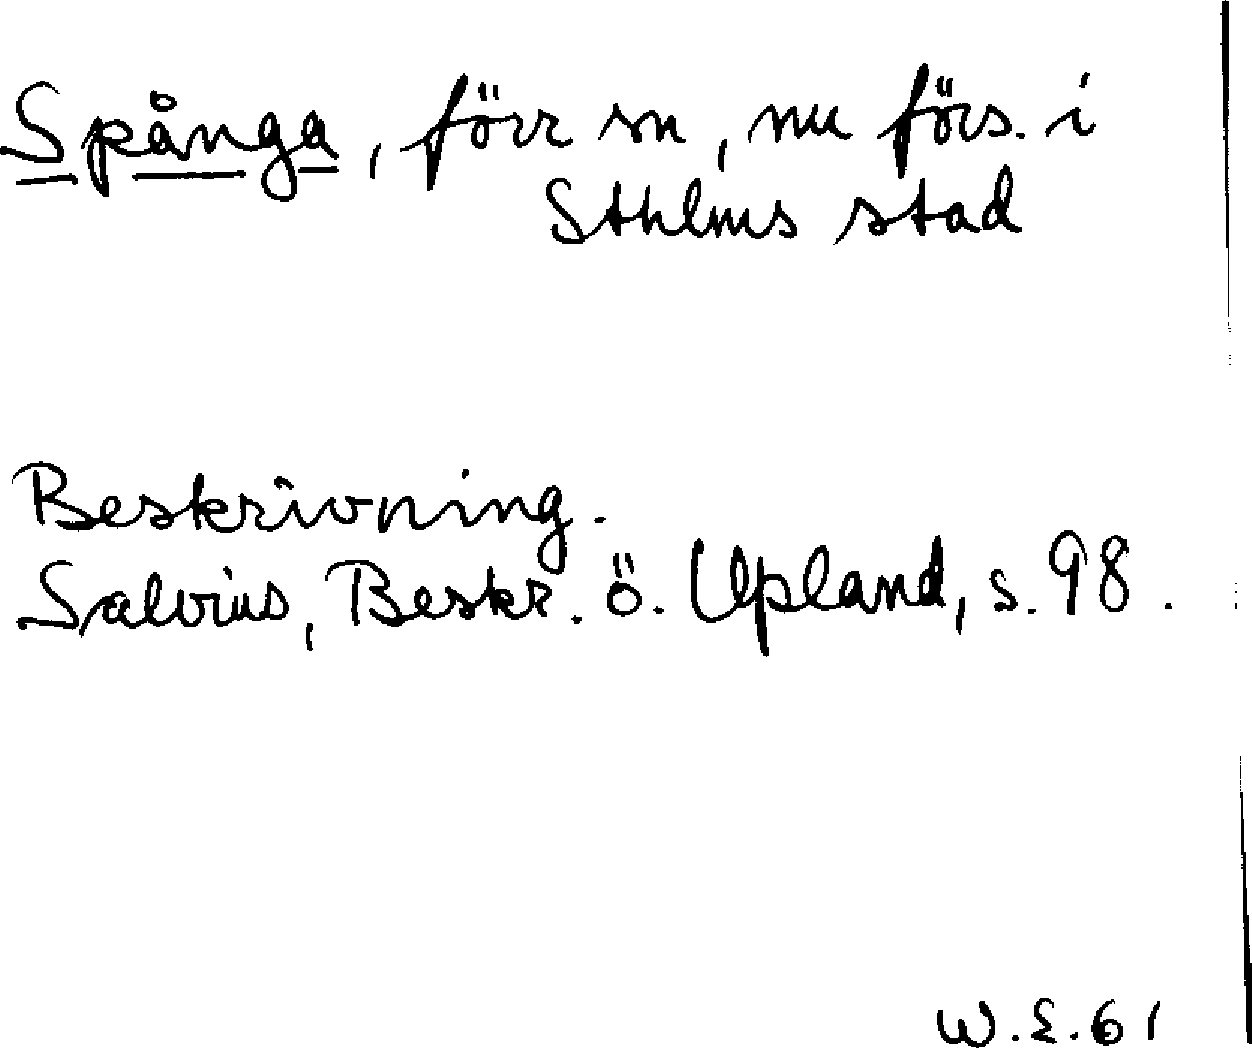 Spånga, förr sn, nu förs. i
Sthlms stad
Beskrivning.
Salvius, Beskr. ö. Upland, s. 98.
W.E.61